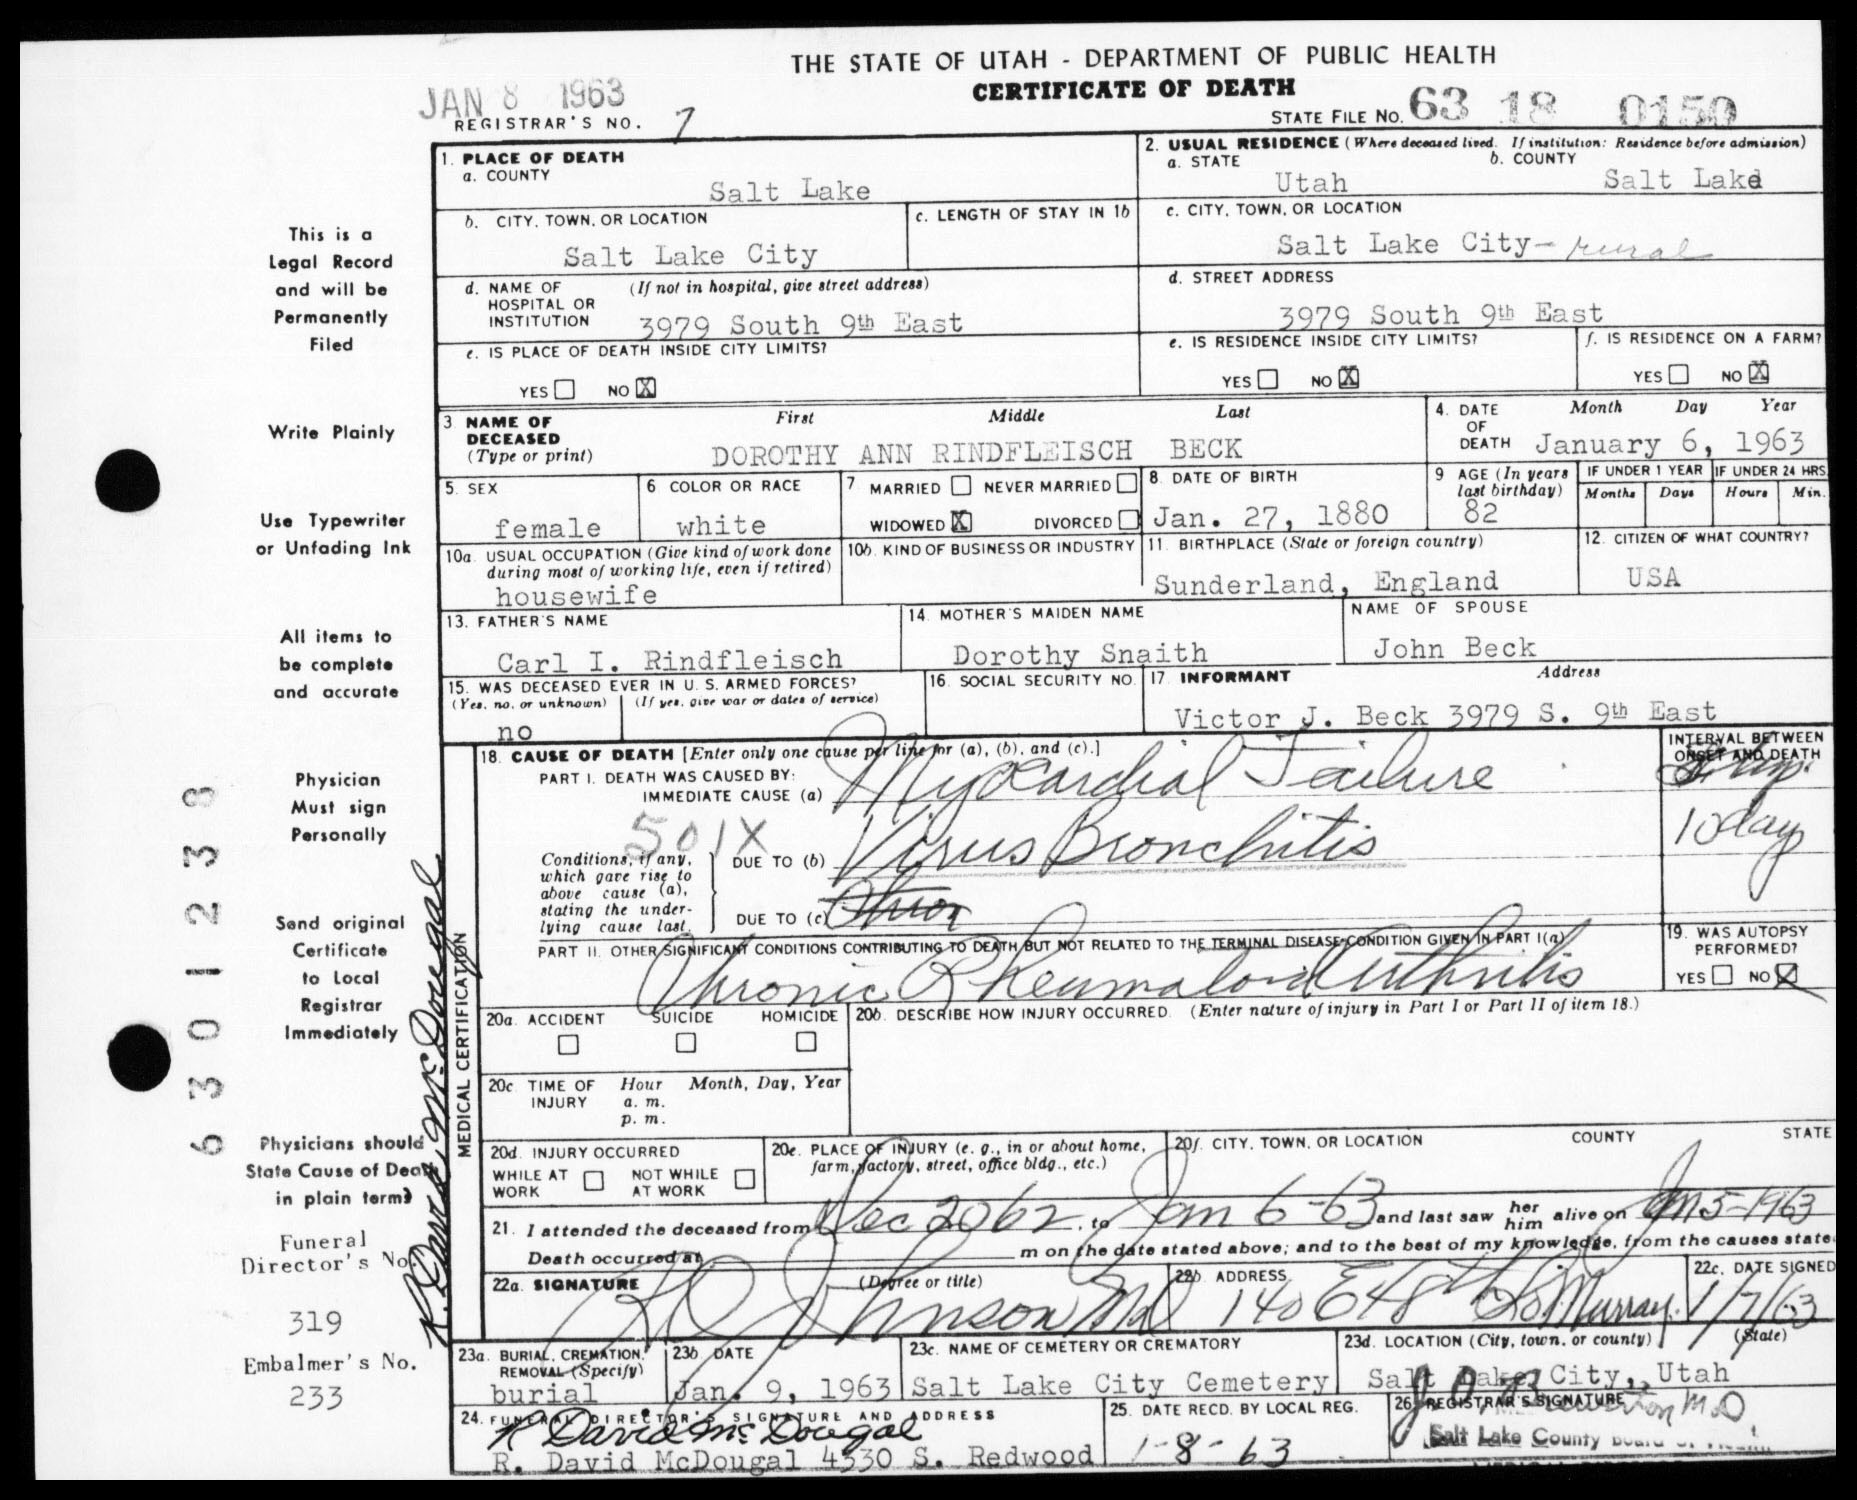 THE STATE OF UTAH - DEPARTMENT OF PUBLIC HEALTH
CERTIFICATE OF DEATH
JAN 8 1963
REGISTRAR'S NO. 7
STATE FILE NO. 63 18 0150
1. PLACE OF DEATH
a. COUNTY
Salt Lake
2. USUAL RESIDENCE (Where deceased lived. If institution: Residence before admission)
a. STATE b. COUNTY
Utah Salt Lake
b. CITY, TOWN, OR LOCATION
Salt Lake City
c. LENGTH OF STAY IN 1b
c. CITY, TOWN, OR LOCATION
Salt Lake City - rural
d. NAME OF HOSPITAL OR INSTITUTION (If not in hospital, give street address)
3979 South 9th East
d. STREET ADDRESS
3979 South 9th East
e. IS PLACE OF DEATH INSIDE CITY LIMITS?
YES NO X
e. IS RESIDENCE INSIDE CITY LIMITS?
YES NO X
f. IS RESIDENCE ON A FARM?
YES NO X
3 NAME OF DECEASED (Type or print)
First Middle Last
DOROTHY ANN RINDFLEISCH BECK
4. DATE OF DEATH Month Day Year
January 6, 1963
5. SEX
female
6 COLOR OR RACE
white
7 MARRIED NEVER MARRIED
WIDOWED X DIVORCED
8. DATE OF BIRTH
Jan. 27, 1880
9 AGE (In years last birthday)
82
IF UNDER 1 YEAR IF UNDER 24 HRS.
Months Days Hours Min.
10a. USUAL OCCUPATION (Give kind of work done during most of working life, even if retired)
housewife
10b. KIND OF BUSINESS OR INDUSTRY
11. BIRTHPLACE (State or foreign country)
Sunderland, England
12. CITIZEN OF WHAT COUNTRY?
USA
13. FATHER'S NAME
Carl I. Rindfleisch
14. MOTHER'S MAIDEN NAME
Dorothy Snaith
NAME OF SPOUSE
John Beck
15. WAS DECEASED EVER IN U. S. ARMED FORCES?
(Yes, no, or unknown) (If yes, give war or dates of service)
no
16. SOCIAL SECURITY NO.
17. INFORMANT Address
Victor J. Beck 3979 S. 9th East
MEDICAL CERTIFICATION
18. CAUSE OF DEATH [Enter only one cause per line for (a), (b), and (c).]
INTERVAL BETWEEN ONSET AND DEATH
PART I. DEATH WAS CAUSED BY:
IMMEDIATE CAUSE (a) Myocardial Failure
501X
Conditions, if any, which gave rise to above cause (a), stating the underlying cause last.
DUE TO (b) Virus Bronchitis 10 day
DUE TO (c) Chron
PART II. OTHER SIGNIFICANT CONDITIONS CONTRIBUTING TO DEATH BUT NOT RELATED TO THE TERMINAL DISEASE CONDITION GIVEN IN PART I(a)
Chronic Rheumatoid Arthritis
19. WAS AUTOPSY PERFORMED?
YES NO X
20a. ACCIDENT SUICIDE HOMICIDE
20b. DESCRIBE HOW INJURY OCCURRED. (Enter nature of injury in Part I or Part II of item 18.)
20c TIME OF INJURY Hour Month, Day, Year
a. m.
p. m.
20d. INJURY OCCURRED
WHILE AT WORK NOT WHILE AT WORK
20e. PLACE OF INJURY (e. g., in or about home, farm, factory, street, office bldg., etc.)
20f. CITY, TOWN, OR LOCATION COUNTY STATE
21. I attended the deceased from Dec 20 62, to Jan 6-63 and last saw her him alive on Jan 5-1963
Death occurred at m on the date stated above; and to the best of my knowledge, from the causes state
22a. SIGNATURE (Degree or title)
Johnson Md
22b. ADDRESS
140 E 48th So Murray.
22c. DATE SIGNED
1/7/63
23a. BURIAL, CREMATION, REMOVAL (Specify)
burial
23b DATE
Jan. 9, 1963
23c. NAME OF CEMETERY OR CREMATORY
Salt Lake City Cemetery
23d. LOCATION (City, town, or county) (State)
Salt Lake City, Utah
24. FUNERAL DIRECTOR'S SIGNATURE AND ADDRESS
R David McDougal
R. David McDougal 4330 S. Redwood
25. DATE RECD. BY LOCAL REG.
1-8-63
26 REGISTRAR'S SIGNATURE
M.D
Salt Lake County
This is a
Legal Record
and will be
Permanently
Filed
Write Plainly
Use Typewriter
or Unfading Ink
All items to
be complete
and accurate
Physician
Must sign
Personally
Send original
Certificate
to Local
Registrar
Immediately
Physicians should
State Cause of Death
in plain terms
Funeral
Director's No.
319
Embalmer's No.
233
6301238
R. David McDougal